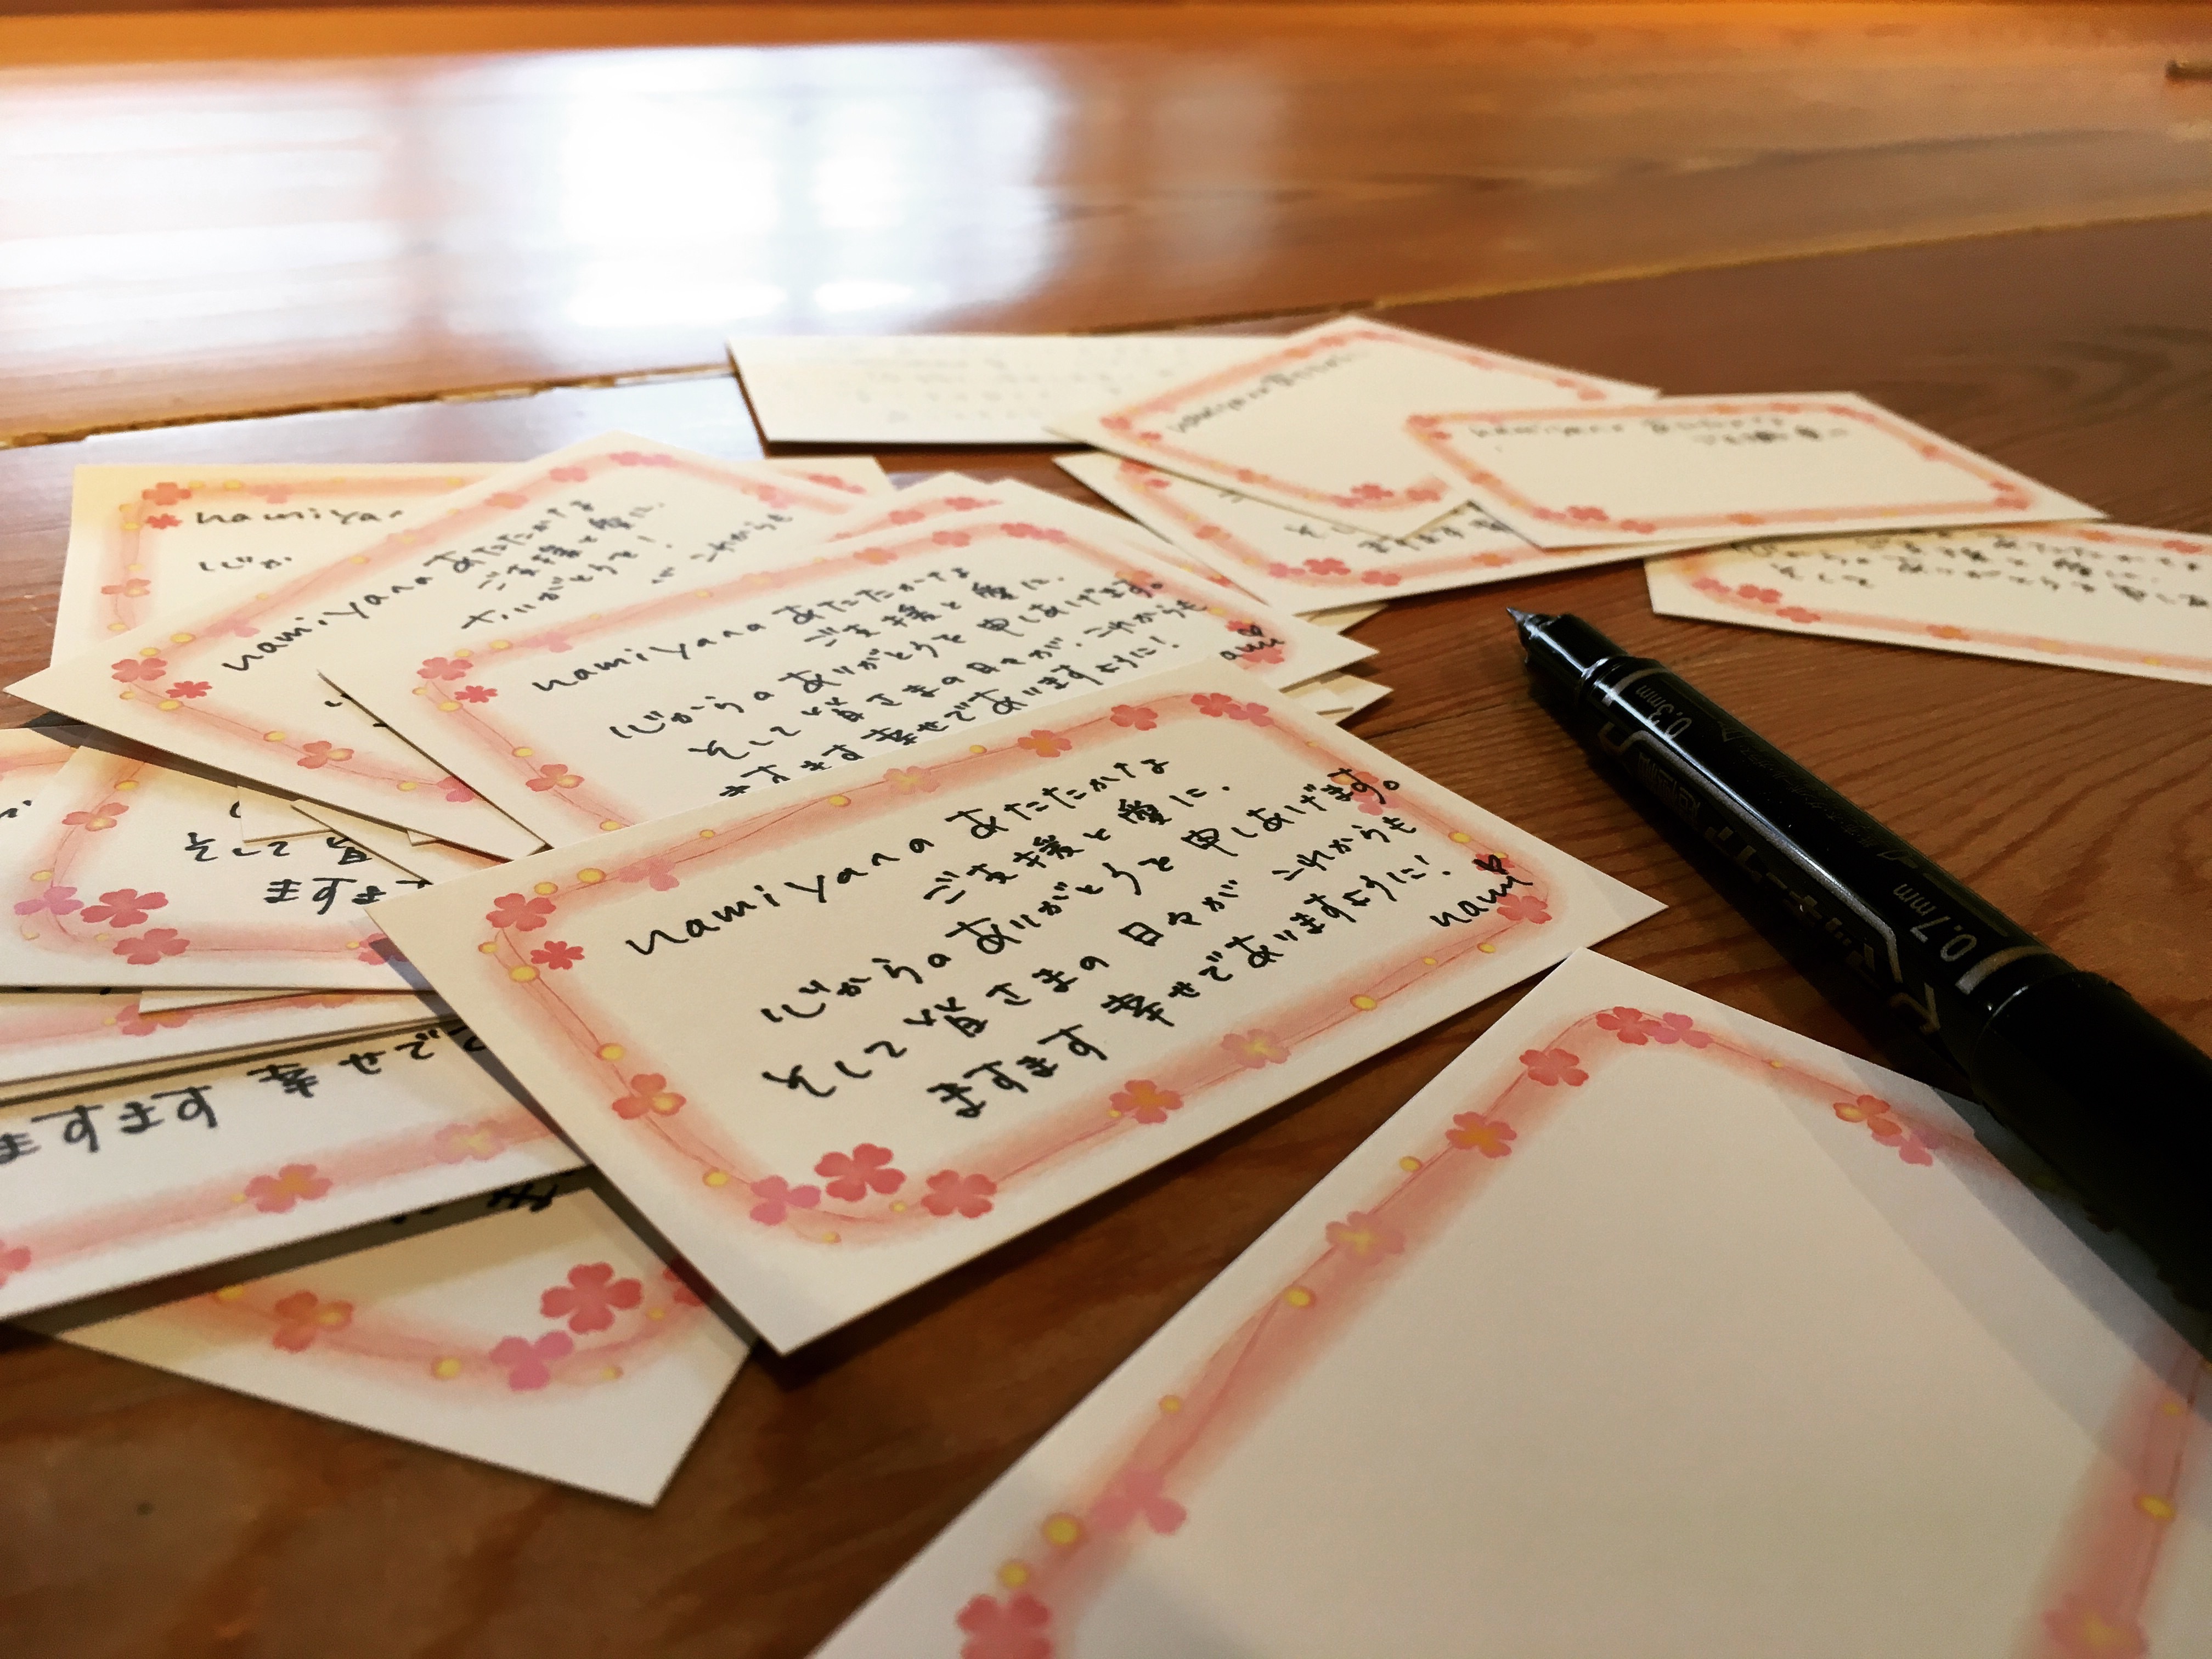 namiyana あたたかな
ご支援と愛に、
心からの ありがとうを 申しあげます。
そして 皆さまの 日々が これからも
ますます 幸せでありますように!
nami
namiyana あたたかな
ご支援と愛に、
心からの ありがとうを 申しあげます。
そして 皆さまの日々が、これからも
ますます 幸せでありますように!
namiyana あたたかな
ご支援と愛に、
ありがとうを!
これからも
namiya
心か
そして 皆
ますま
ますます 幸せで
0.3mm
0.7mm